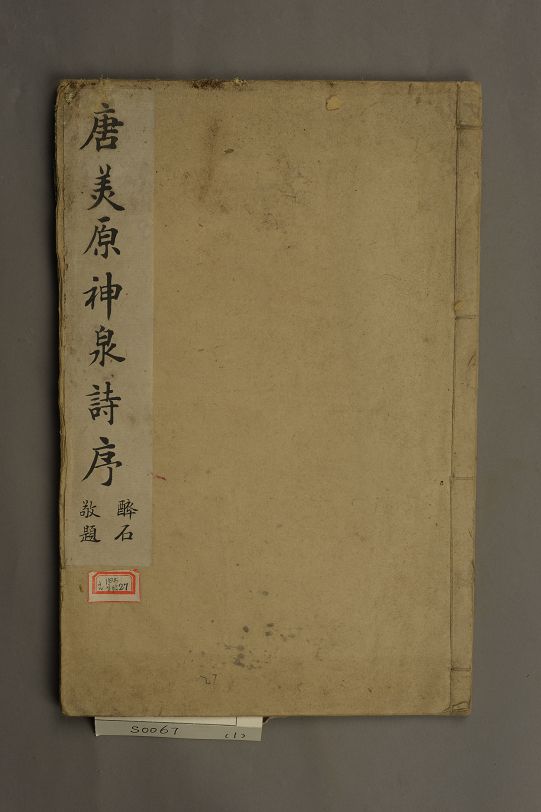 唐美原神泉詩序
醉石
敬題
27
S0067
(1)